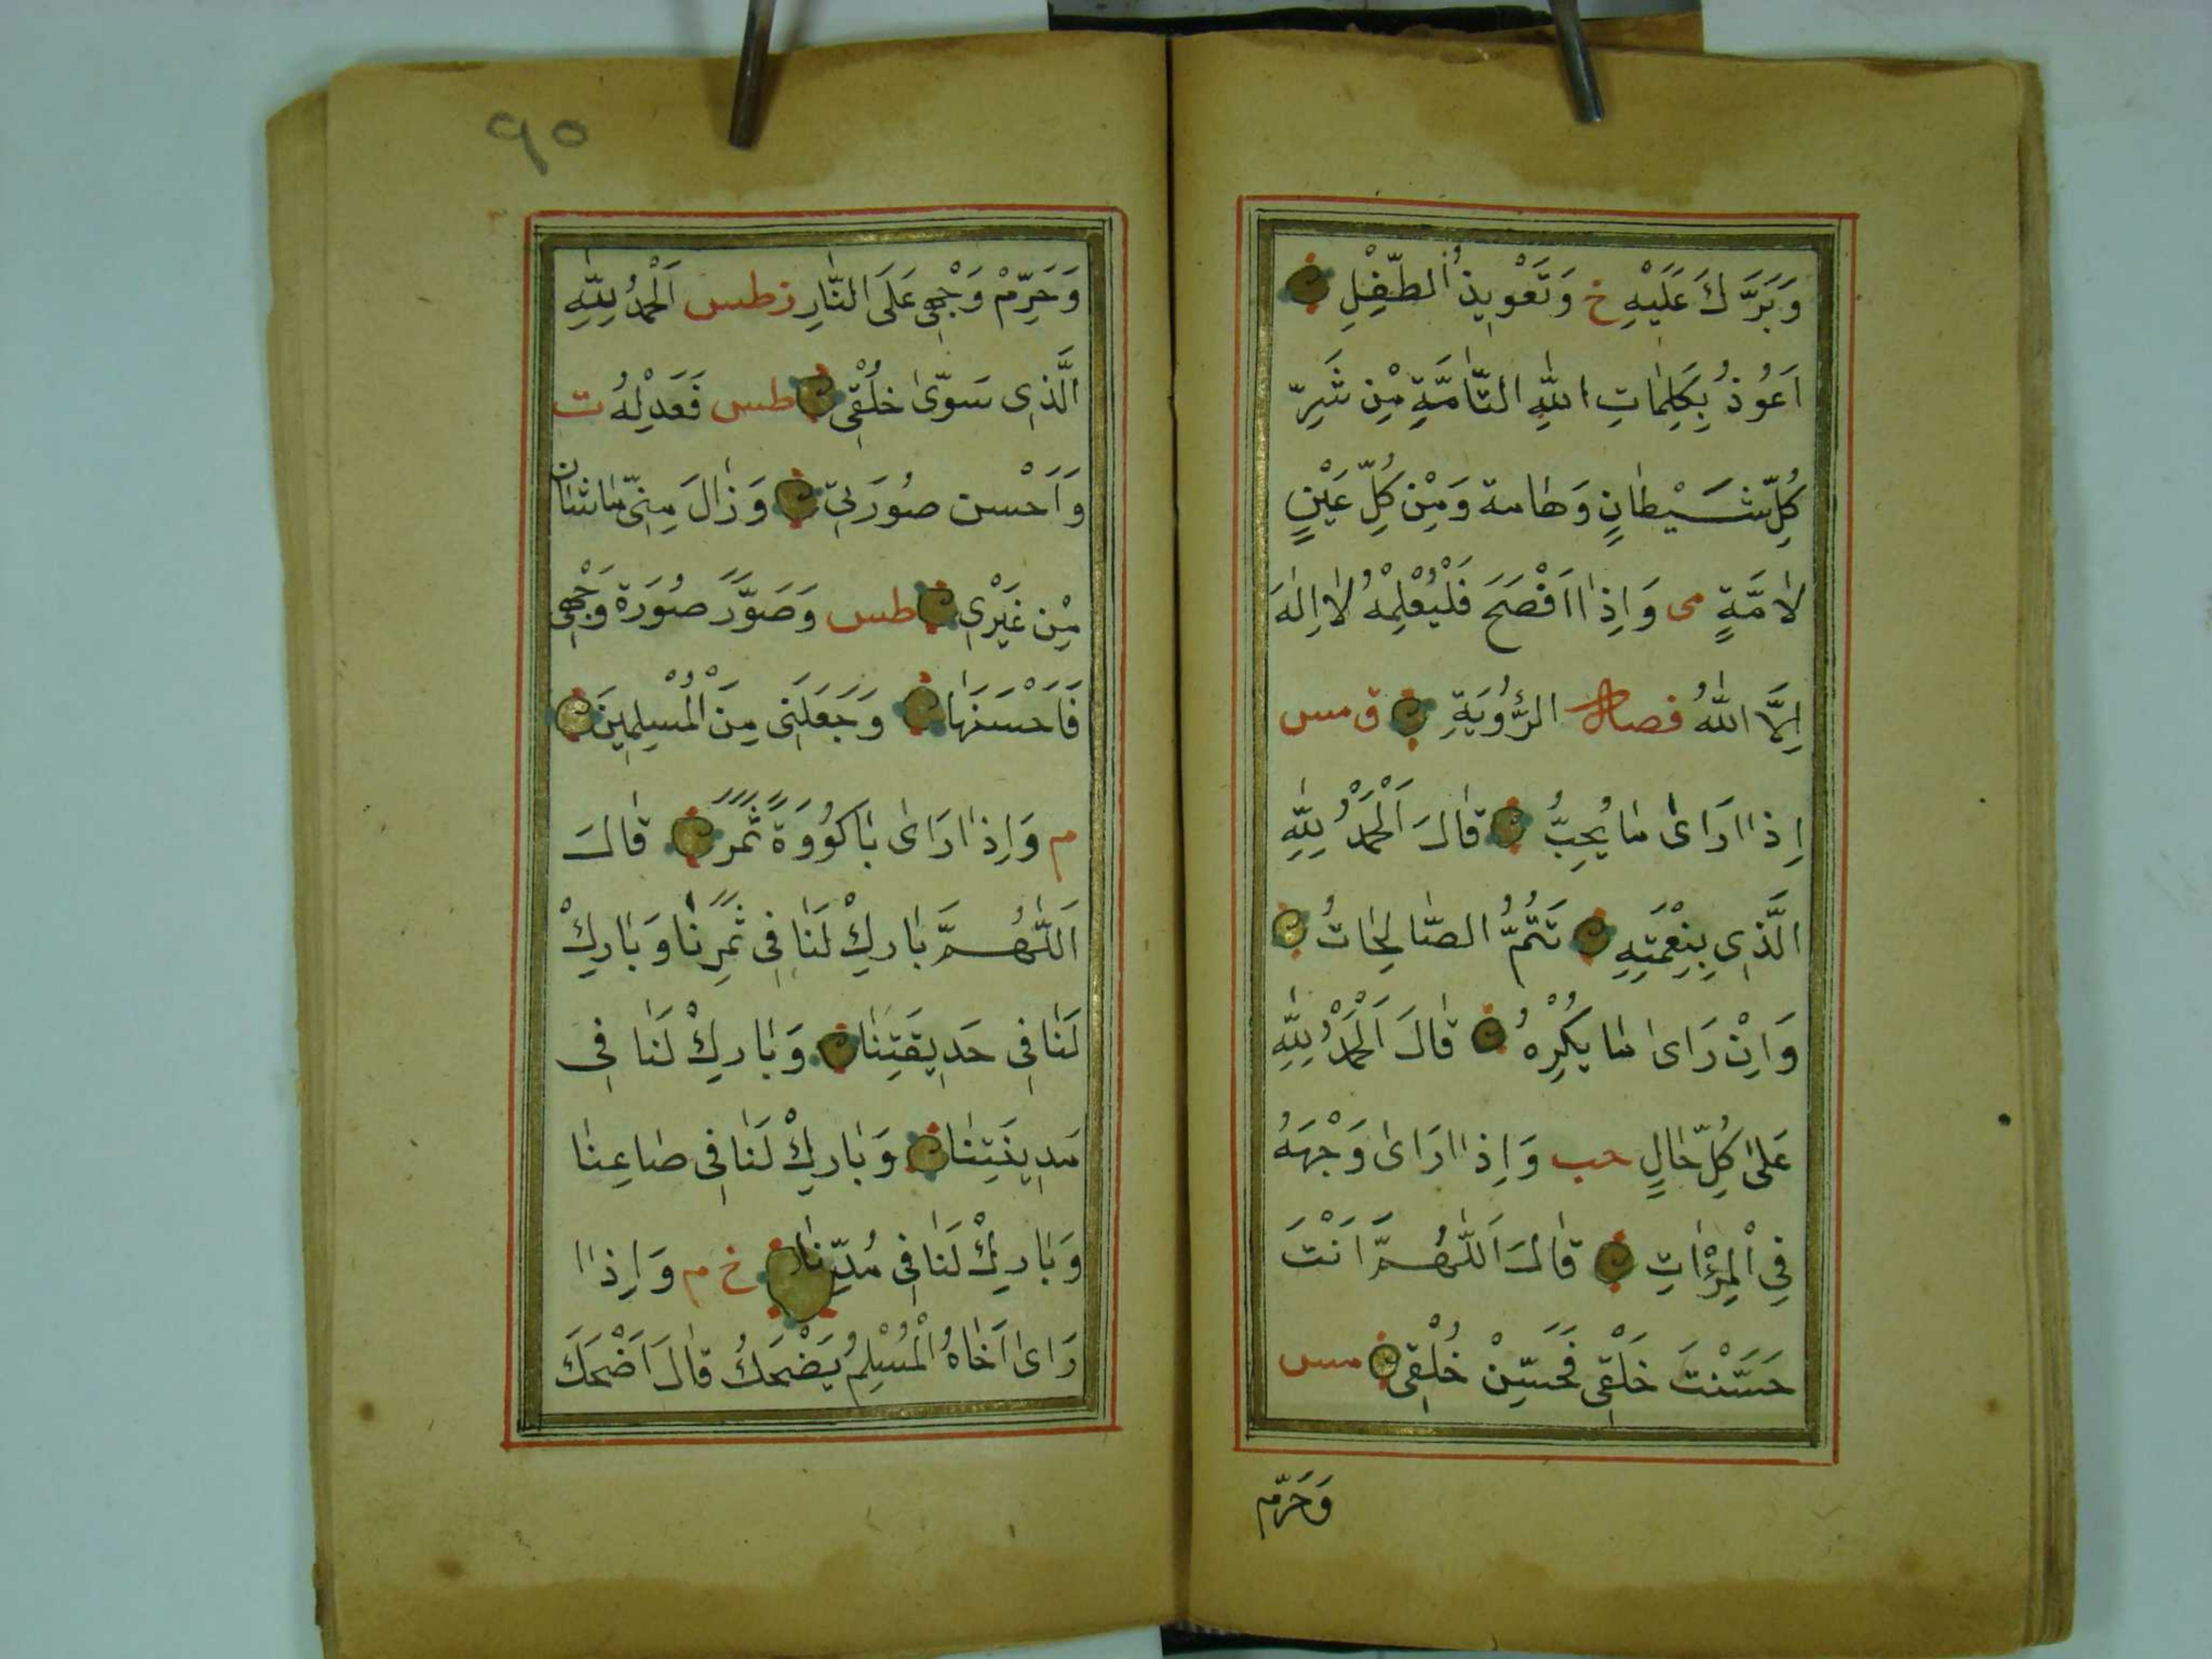 وَبَرَّكَ عَلَيْهِ خ وَتَعْوِيذُ الطِّفْلِ
اَعُوذُ بِكَلِمَاتِ اللّٰهِ التَّامَّةِ مِنْ شَرِّ
كُلِّ شَيْطَانٍ وَهَامة وَمِنْ كُلِّ عَيْنٍ
لَامَّةٍ مى وَاِذَا اَفْصَحَ فَلْيُعْلِمْهُ لَا اِلٰهَ
اِلَّا اللّٰهُ فصل الرُّؤْيَةِ ق مس
اِذَا رَاَى مَا يُحِبُّ قَالَ اَلْحَمْدُ لِلّٰهِ
الَّذِي بِنِعْمَتِهِ تَتُمُّ الصَّالِحَاتُ
وَاِنْ رَاَى مَا يَكْرِهُ قَالَ اَلْحَمْدُ لِلّٰهِ
عَلٰى كُلِّ حَالٍ حب وَاِذَا رَاَى وَجْهَهُ
فِي الْمِرْاٰتِ قَالَ اَللّٰهُمَّ اَنْتَ
حَسَّنْتَ خَلْقِي فَحَسِّنْ خُلْقِي مس
وَحَرِّم
٩٥
وَحَرِّمْ وَجْهِي عَلَى النَّارِ ز طس اَلْحَمْدُ لِلّٰهِ
الَّذِى سَوّٰى خَلْقِي طس فَعَدْلِهُ ت
وَاَحْسن صُورَتِي وَزَالَ مِنِّي مَا شَان
مِنْ غَيْرِي طس وَصَوَّرَ صُورَة وَجْهِي
فَاَحْسَنَهَا وَجَعَلَنِى مِنَ الْمُسْلِمِينَ
م وَاِذَا رَاَى بَاكُوُوَةً ثَمَرٍ قَالَ
اَللّٰهُمَّ بَارِكْ لَنَا فِي ثَمَرِنَا وَبَارِكْ
لَنَا فِي حَدِيقَتِنَا وَبَارِكْ لَنَا فِي
مَدِينَتِنَا وَبَارِكْ لَنَا فِي صَاعِنَا
وَبَارِكْ لَنَا فِي مُدِّنَا خ م وَاِذَا
رَاَى اَخَاهُ الْمُسْلِمُ يَضْحَكُ قَالَ اَضْحَكَ